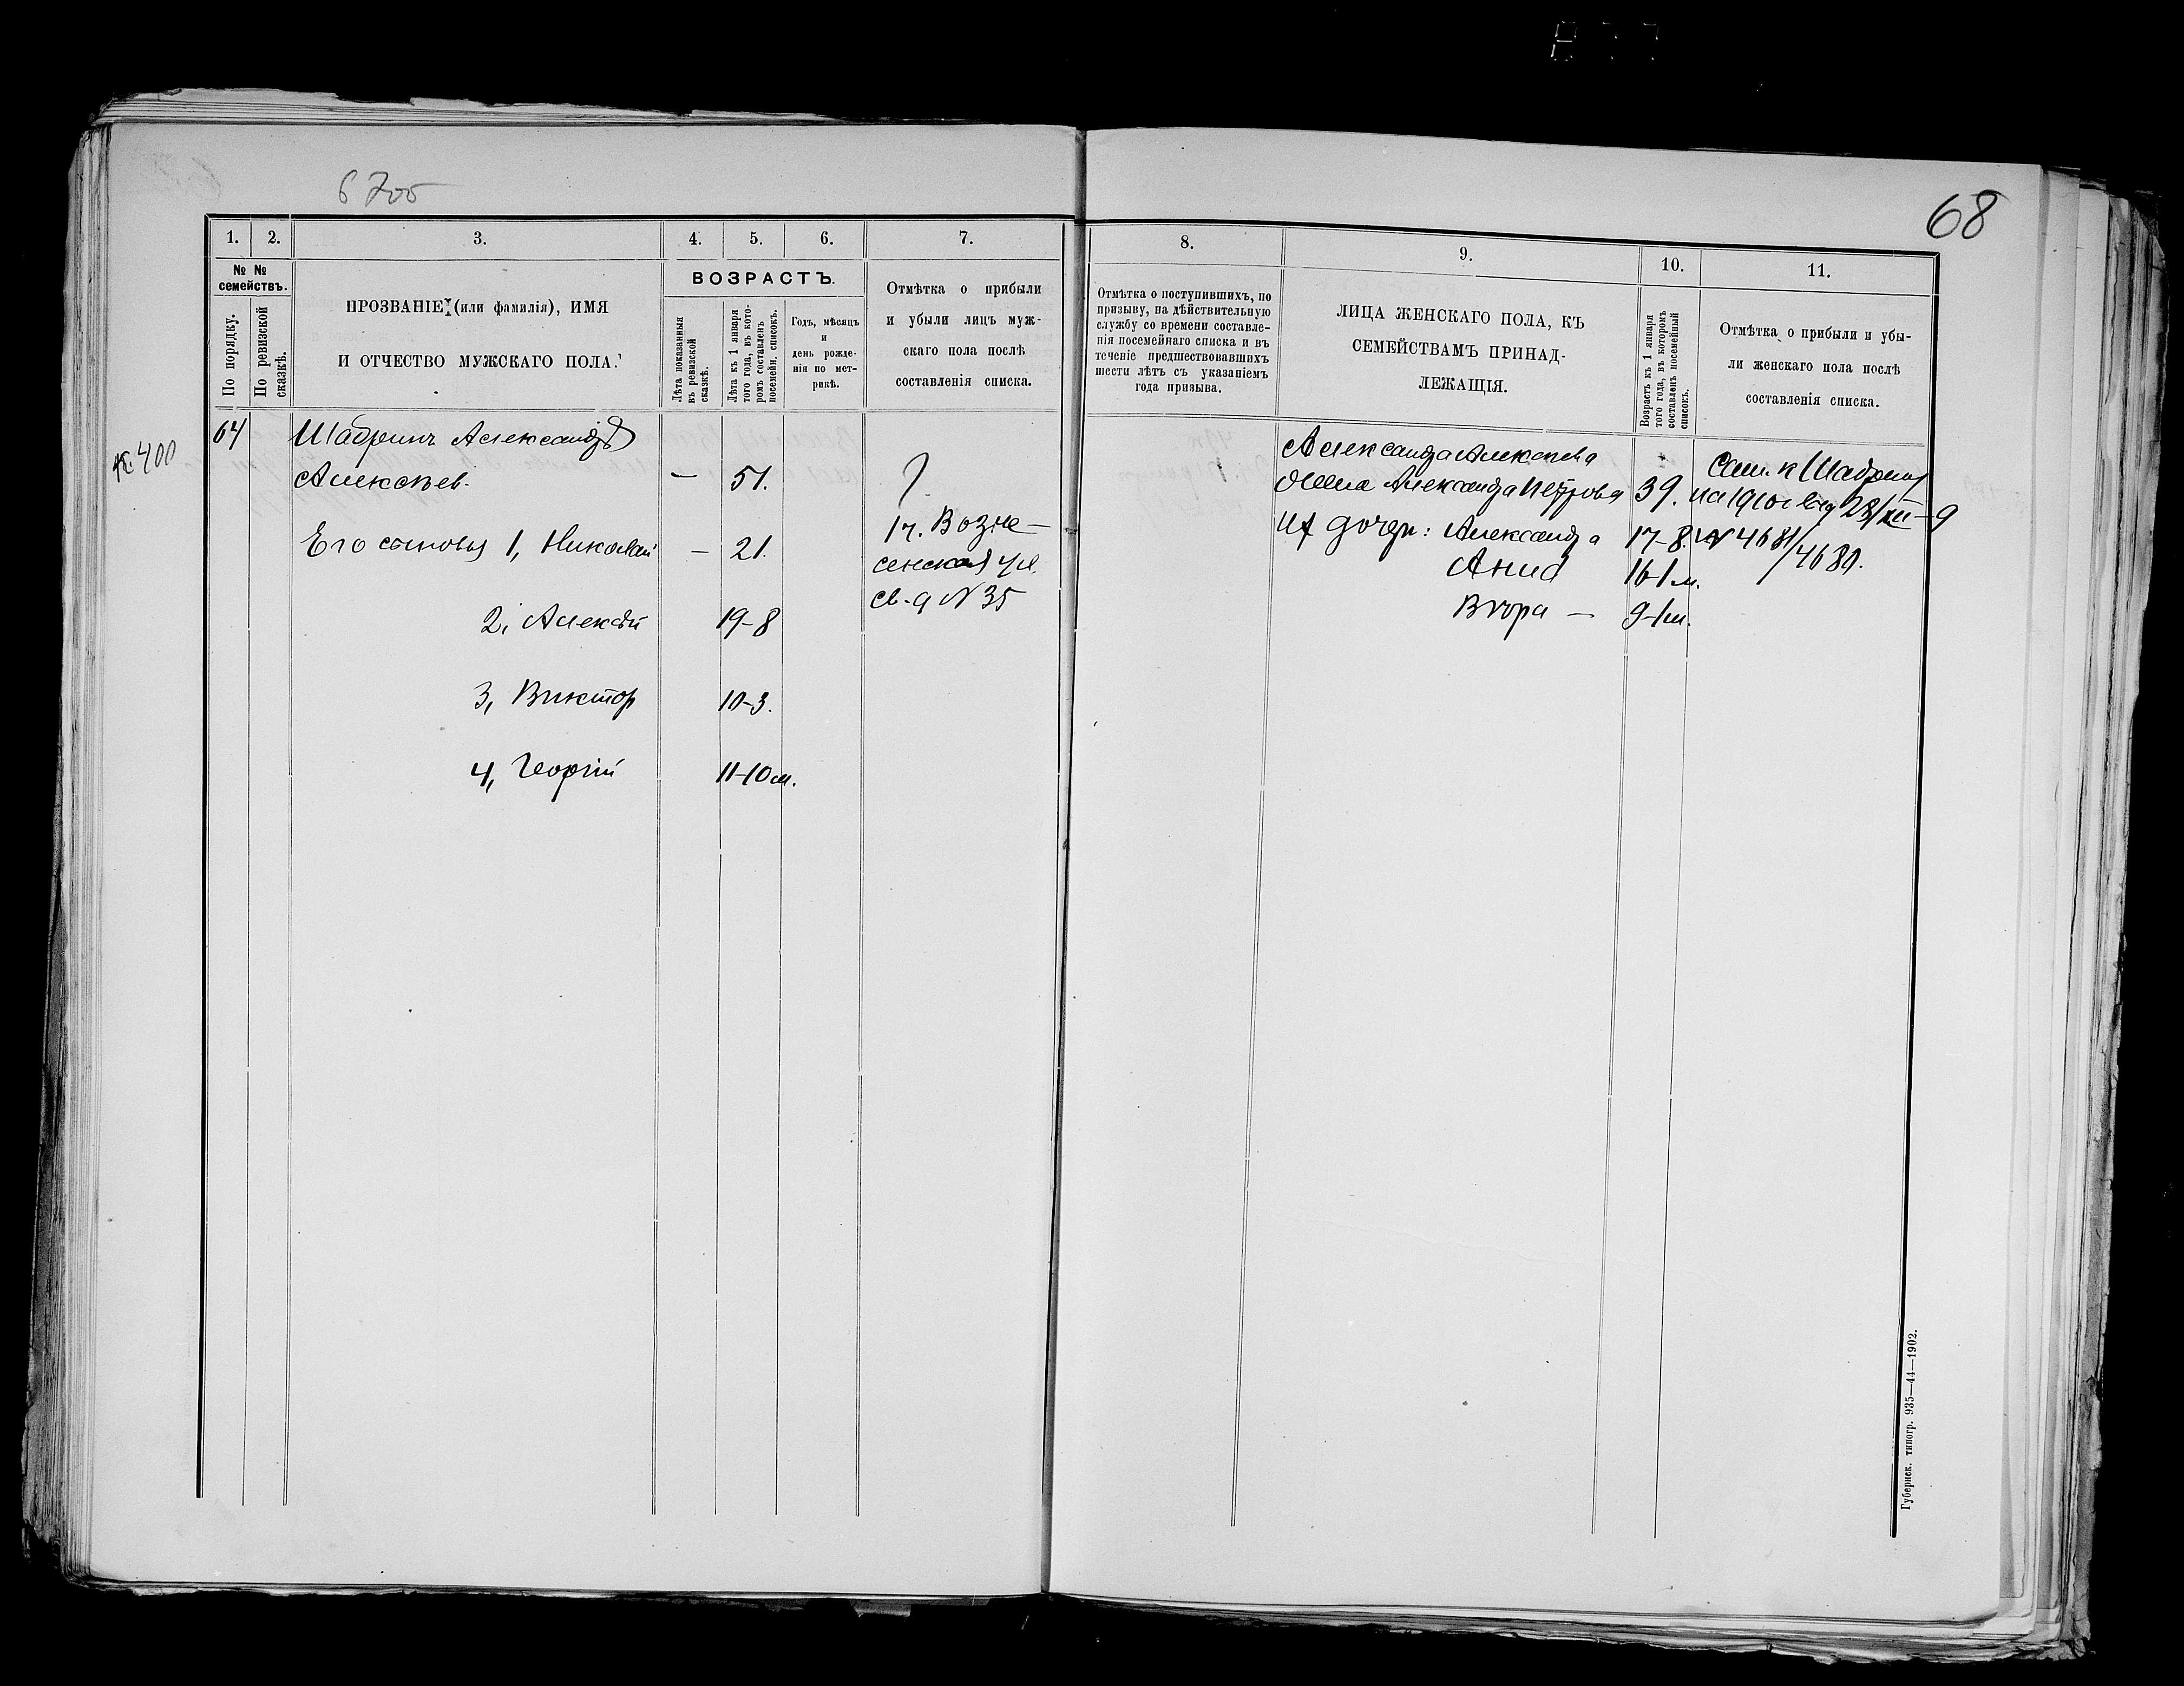 68
1. 2. 3. 4. 5. 6. 7.
№ № семействъ.
По порядку.
По ревизской сказкѣ.
ПРОЗВАНІЕ (или фамилія), ИМЯ
И ОТЧЕСТВО МУЖСКАГО ПОЛА.
ВОЗРАСТЪ.
Лѣта показанныя
въ ревизской
сказкѣ.
Лѣта къ 1 января
того года, въ кото-
ромъ составленъ
посемейн. список.
Годъ, мѣсяцъ
и
день рожде-
нія по мет-
рикѣ.
Отмѣтка о прибыли
и убыли лицъ муж-
скаго пола послѣ
составленія списка.
к. 400
64 Шабринъ Александръ
Алексѣев. — 51. ?
Его сыновья 1, Николай — 21.
17. Возне-
сенская ул.
св. д N 35
2, Алексѣй 19-8
3, Виктор 10-3.
4, Георгій 11-10 м.
8. 9. 10. 11.
Отмѣтка о поступившихъ, по
призыву, на дѣйствительную
службу со времени составле-
нія посемейнаго списка и въ
теченіе предшествовавшихъ
шести лѣтъ съ указаніемъ
года призыва.
ЛИЦА ЖЕНСКАГО ПОЛА, КЪ
СЕМЕЙСТВАМЪ ПРИНАД-
ЛЕЖАЩІЯ.
Возрастъ къ 1 января
того года, въ которомъ
составленъ посемейный
списокъ.
Отмѣтка о прибыли и убы-
ли женскаго пола послѣ
составленія списка.
Александра Алексѣева
жена Александра Петрова 39.
Их дочери: Александра 17-8.
Анна 16-1 м.
Вѣра — 9-1 м.
к Шабрину
на 1910 г. 28/XII-9
N 4681/4680.
Губернск. типогр. 935—44—1902.